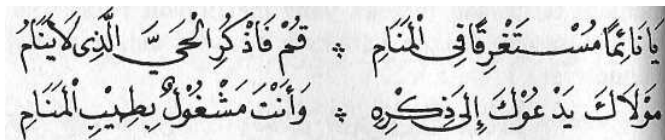 يَا نَائِمًا مُسْتَغْرِقًا فِي الْمَنَامِ ۞ قُمْ فَاذْكُرِ الْحَيَّ الَّذِي لَا يَنَامُ
مَوْلَاكَ يَدْعُوكَ إِلَى ذِكْرِهِ ۞ وَأَنْتَ مَشْغُولٌ بِطِيبِ الْمَنَامِ